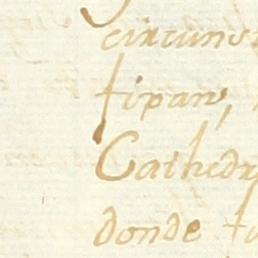 circuns
tipan,
Cathedr
donde